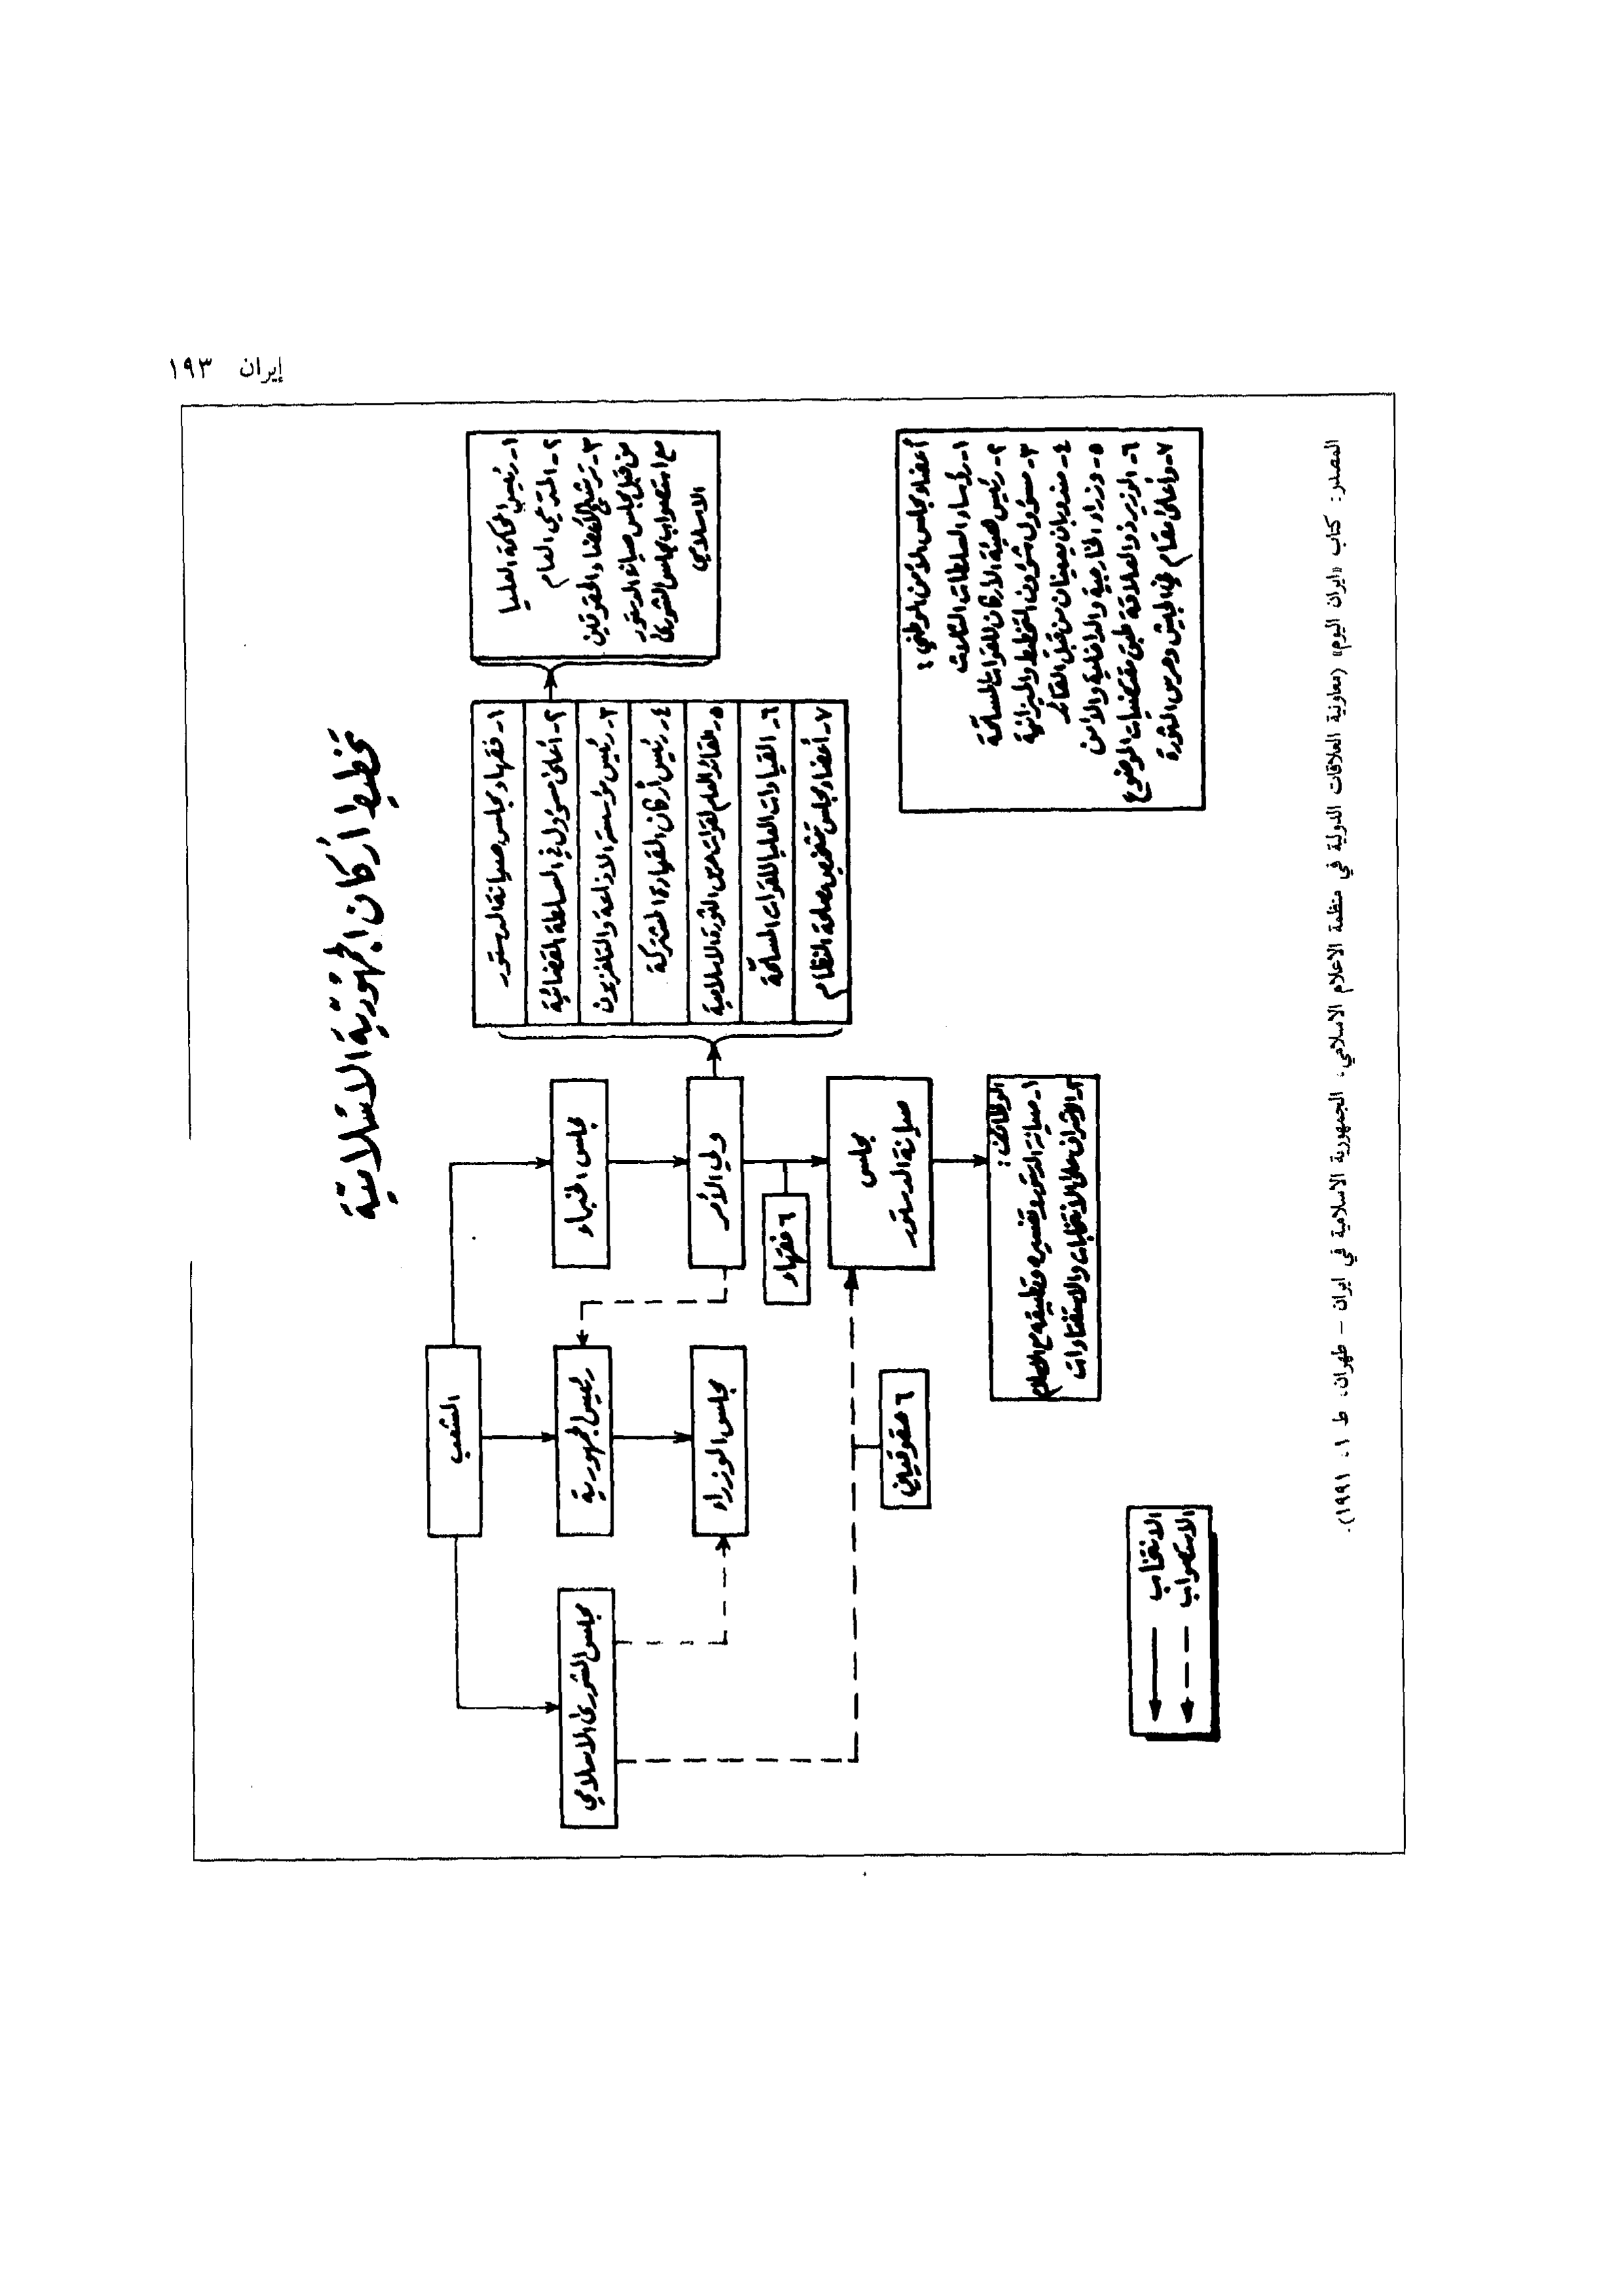 إيران ١٩٣
تخطيط أركان الجمهورية الاسلامية
الشعب
مجلس الخبراء
رئيس الجمهورية
مجلس الشورى الاسلامي
ولي الأمر
مجلس الوزراء
٦ فقهاء
مجلس
صيانة الدستور
٦ حقوقيين
الوظائف:
١- صيانة الدستور وتفسيره وتطبيقه مع الاسلام
٢- الاشراف على الانتخابات والاستفتاءات
١- فقهاء مجلس صيانة الدستور
٢- أعلى مسؤول في السلطة القضائية
٣- رئيس مؤسسة الاذاعة والتلفزيون
٤- رئيس أركان القيادة المشتركة
٥- القائد العام لقوات حرس الثورة الاسلامية
٦- القيادات العليا للقوات المسلحة
٧- أعضاء مجلس تشخيص مصلحة النظام
١- رئيس المحكمة العليا
٢- المدعي العام
٣- ترشيح القضاء الحقوقيين
من قبل مجلس صيانة الدستور
مع استصواب مجلس الشورى
الاسلامي
أعضاء مجلس الأمن الوطني:
١- رؤساء السلطات الثلاث
٢- رئيس هيئة الأركان للقوات المسلحة
٣- مسؤول شؤون التخطيط والميزانية
٤- مندوبان يعينان من قبل القائد
٥- وزراء الخارجية والداخلية والأمن
٦- الوزير ذو العلاقة طبق مقتضيات الموضوع
٧- وأعلى مقام في الجيش وحرس الثورة
الانتخاب
الاستصواب
المصدر: كتاب «ايران اليوم» (معاونية العلاقات الدولية في منظمة الاعلام الاسلامي، الجمهورية الاسلامية في ايران – طهران، ط ١، ١٩٩١).